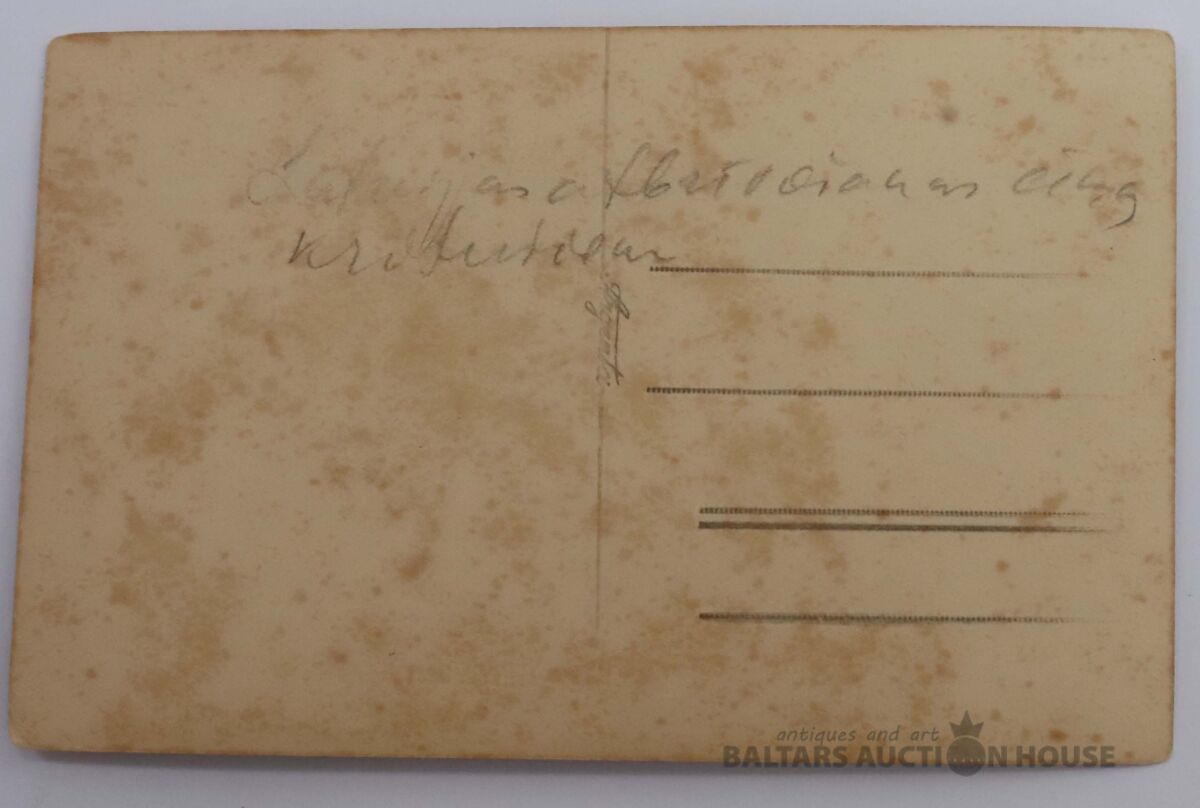 Latvijas atbrivošanas ciņa
kritušiem
antiques and art
BALTARS AUCTION HOUSE